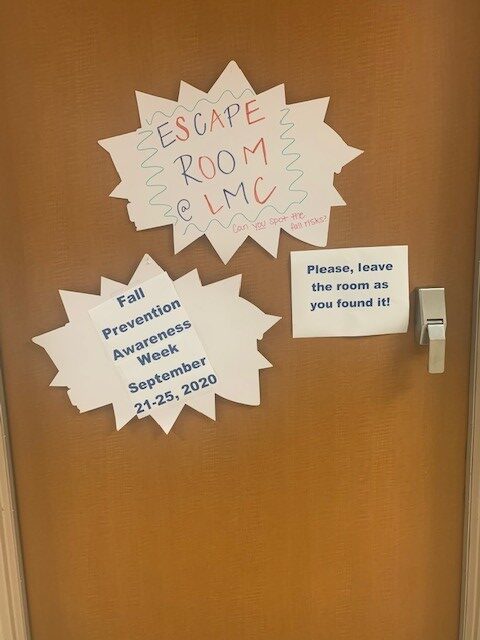 ESCAPE
ROOM
@ LMC
Can you spot the
fall risks?
Please, leave
the room as
you found it!
Fall
Prevention
Awareness
Week
September
21-25, 2020